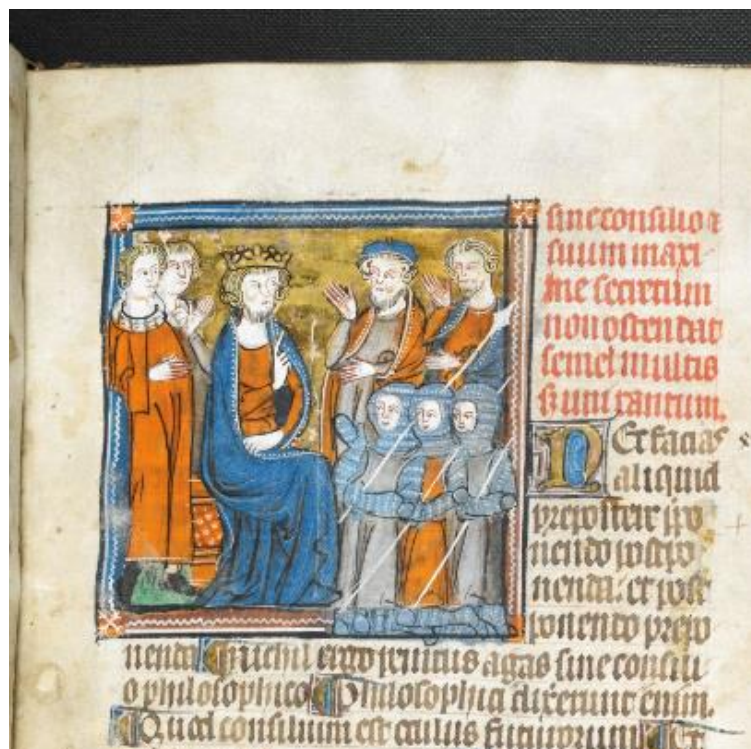 sine consilio
suum maxi
me secretum
non ostendat
semel multis
uni tantum.
Nec facias
aliquid
nendo postpo
nenda: et post
ponendo prepo
nenda Nichil ergo penitus agas sine consili
o philosophico Philosophici dixerunt enim.
Quod consilium est oculus futurorum Et